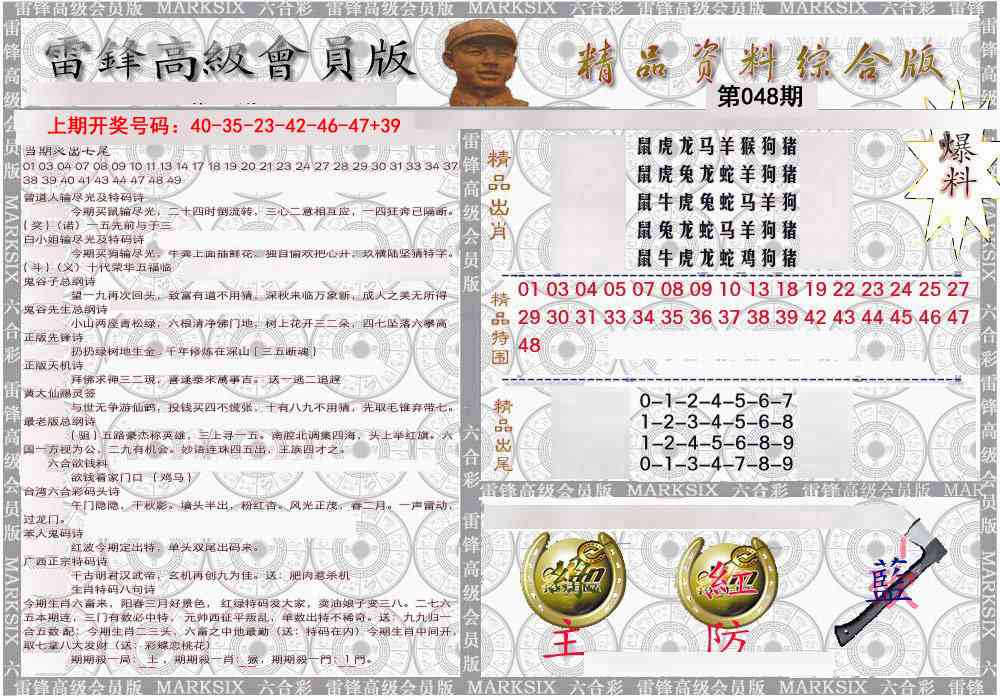 雷锋高级会员版 MARKSIX 六合彩 雷锋高级会员版 MARKSIX 六合彩 雷锋高级会员版 MARKSIX 六合彩
雷鋒高級會員版
精品资料综合版
第048期
上期开奖号码：40-35-23-42-46-47+39
01 03 04 07 08 09 10 11 13 14 17 18 19 20 21 23 24 27 28 29 30 31 33 34 37
38 39 40 41 43 44 47 48 49
曾道人输尽光及特码诗
今期买鼠输尽光，二十四时倒流转，三心二意相互应，一四狂奔已隔断。
{奖}（诺）一五先前与子三
白小姐输尽光及特码诗
今期买狗输尽光，牛粪上面插鲜花，独自偷欢把心开，玖横陆坚猜特字。
{斗}（义）十代荣华五福临
鬼谷子总纲诗
望一九再次回头，致富有道不用猜，深秋来临万象新，成人之美无所得
鬼谷先生总纲诗
小山两座青松绿，六根清净佛门地，树上花开三二朵，四七坠落六攀高
正版先锋诗
扔扔绿树地生金，千年修炼在深山{三五断魂}
正版天机诗
拜佛求神三二現，喜逢泰來萬事吉。 送一逃二追趕
黄大仙赐灵签
与世无争游仙鹤，投钱买四不慌张，十有八九不用猜，先取毛锥弃带七。
最老版总纲诗
{诅}五路豪杰称英雄，三上寻一五。南腔北调集四海，头上举红旗。六
国一万视为公，二九有机会。妙语连珠四五出，王族四才之。
六合欲钱料
欲钱看家门口 {鸡马}
台湾六合彩码头诗
午门隐隐，千秋影。墙头半出，粉红杏。风光正茂，春二月。一声雷动，
过龙门。
本人鬼码诗
红波今期定出特，单头双尾出码来。
广西正宗特码诗
千古胡君汉武帝，玄机再创九为佳。送：肥肉惹杀机
生肖特码八句诗
今期生肖六畜来，阳春三月好景色， 红绿特码发大家，卖油娘子变三八。二七六
五本期连，三门有数必中特， 元帅西征平叛乱，单数出特不稀奇。送：九九归一
合五数 配：今期生肖二三头，六畜之中地最勤（送：特码在内）今期生肖中间开，
取七拿八大发财（送：彩蝶恋桃花）
期期殺一局：土，期期殺一肖：猴，期期殺一門：1門。
精品出肖
鼠虎龙马羊猴狗猪
鼠虎兔龙蛇羊狗猪
鼠牛虎兔蛇马羊狗
鼠兔龙蛇马羊狗猪
鼠牛虎龙蛇鸡狗猪
爆料
精品特围
01 03 04 05 07 08 09 10 13 18 19 22 23 24 25 27
29 30 31 33 34 35 36 37 38 39 42 43 44 45 46 47
48
精品出尾
0-1-2-4-5-6-7
1-2-3-4-5-6-8
1-2-4-5-6-8-9
0-1-3-4-7-8-9
雷锋高级会员版 MARKSIX 六合彩 雷锋高级会员版 MARKSIX
主
紅
防
藍
雷锋高级会员版 MARKSIX 六合彩 雷锋高级会员版 MARKSIX 六合彩 雷锋高级会员版 MARKSIX 六合彩